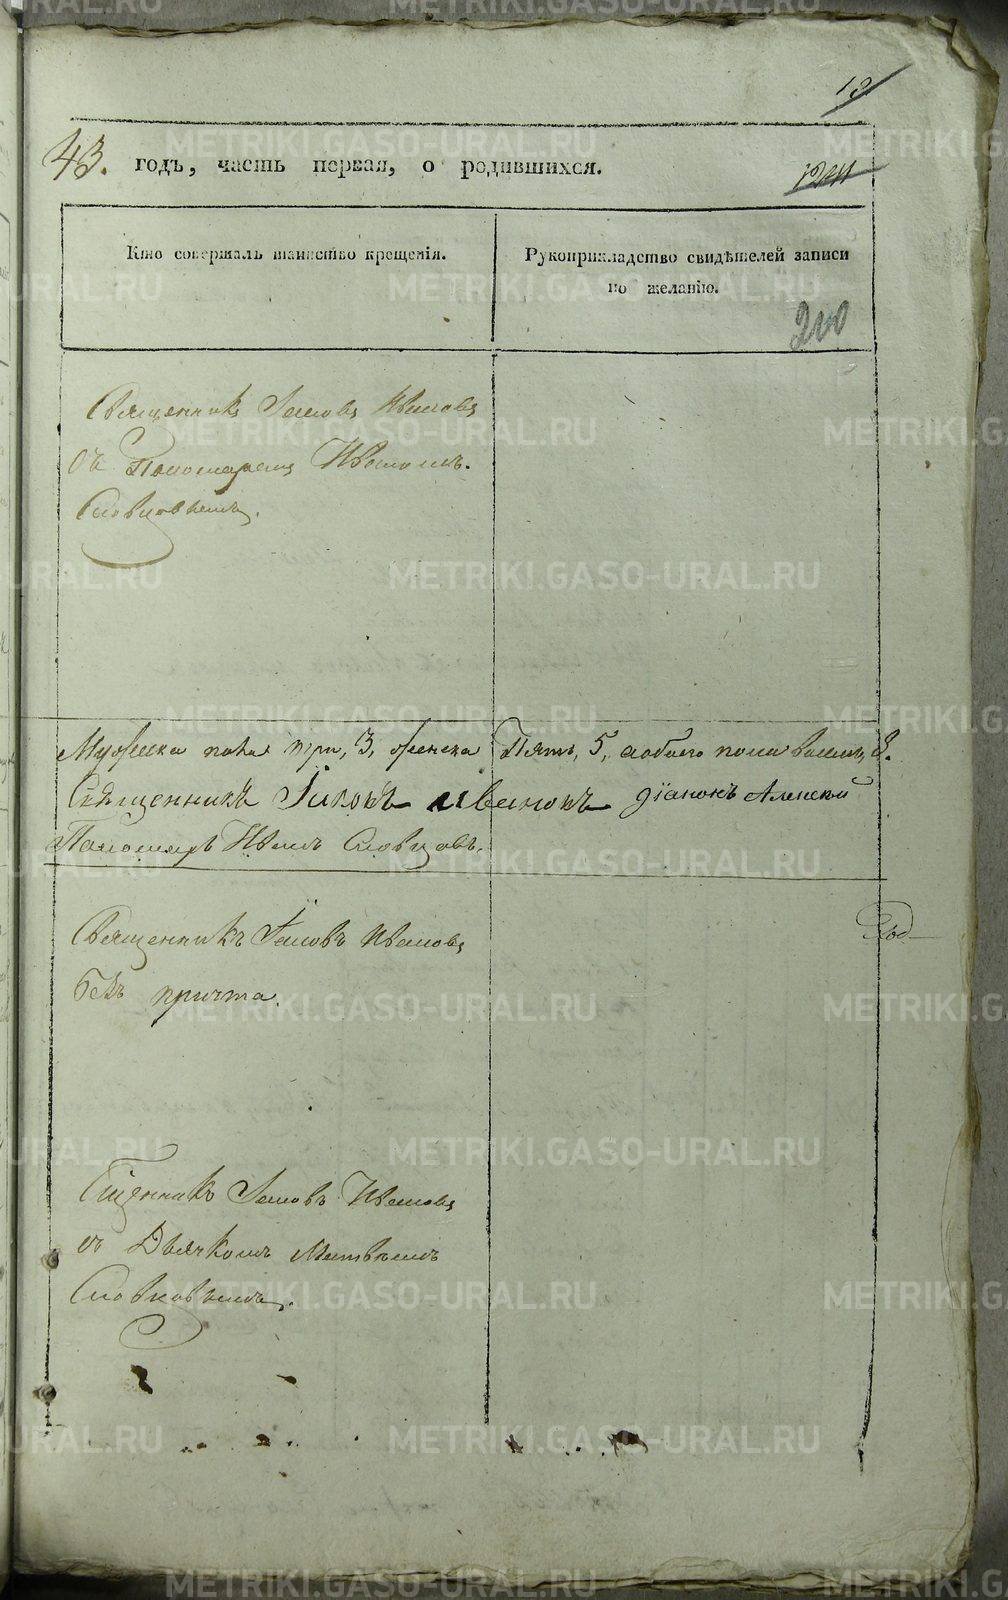 43. годъ, часть первая, о родившихся.
Кто совершалъ таинство крещенія.
Рукоприкладство свидѣтелей записи
по желанію.
200
Священникъ Іаковъ Ивановъ
съ Пономаремъ Иваномъ
Словцовымъ.
Мужеска пола три, 3, женска Пять, 5, обоего пола восемь, 8.
Священникъ Іаковъ Ивановъ Діаконъ Алексей
Пономарь Иванъ Словцовъ.
Священникъ Іаковъ Ивановъ
безъ причта.
Сщенникъ Іаковъ Ивановъ
съ Дьячкомъ Матвѣемъ
Словцовымъ.
METRIKI.GASO-URAL.RU